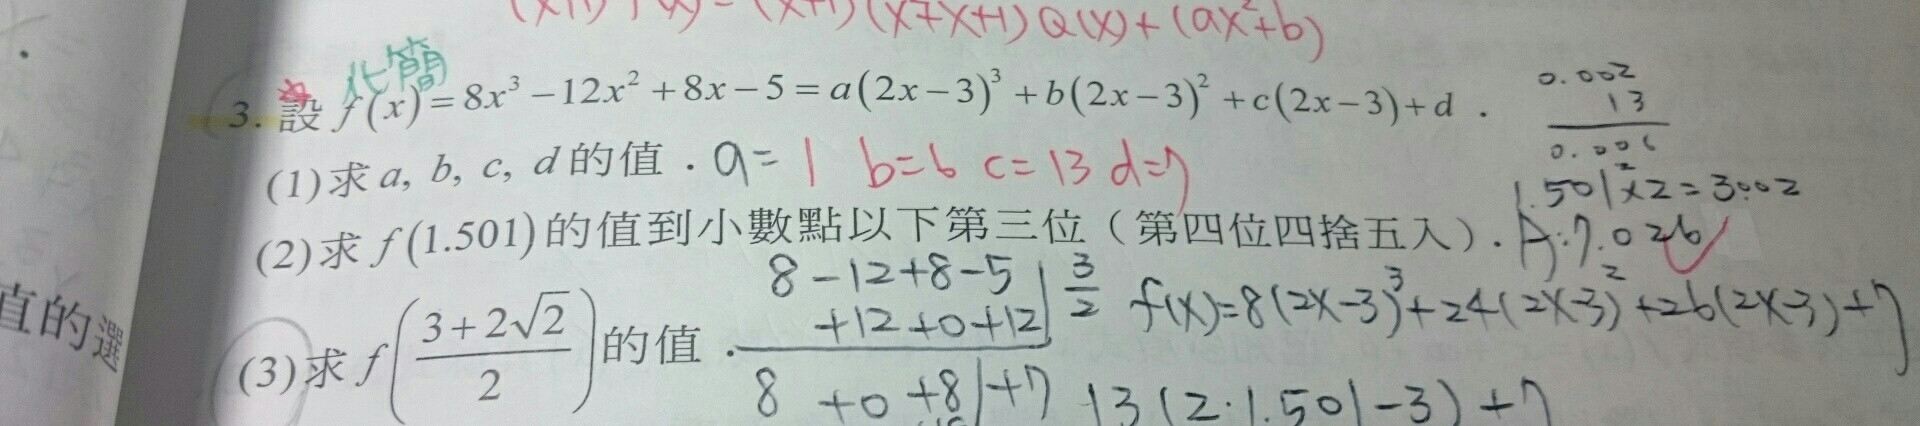 (x+1)f(x)=(x+1)(x²+x+1)Q(x)+(ax²+b)
化簡
3. 設 f(x)=8x³−12x²+8x−5=a(2x−3)³+b(2x−3)²+c(2x−3)+d．
0.002
13
0.006
2
(1)求 a, b, c, d 的值．a=1 b=6 c=13 d=7
1.501×2=3.002
(2)求 f(1.501)的值到小數點以下第三位（第四位四捨五入）．A:7.026
8−12+8−5 | 3/2
+12+0+12
8 +0 +8 | +7
f(x)=8(2x-3)³+24(2x-3)²+26(2x-3)+7
(3)求 f((3+2√2)/2)的值．
13(2·1.501-3)+7
直的選